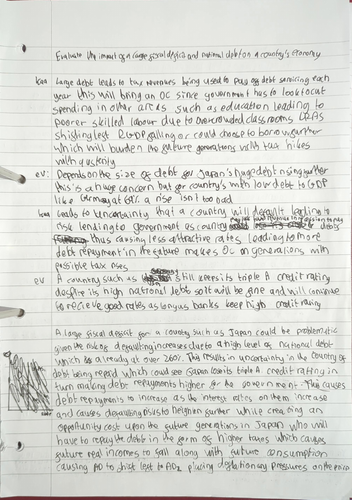 Evaluate the impact of a large fiscal deficit and national debt on a country's economy
Kaa Large debt leads to tax revenues being used to pay of debt servicing each
year this will bring an OC since government has to look to cut
spending in other areas such as education leading to
poorer skilled labour due to overcrowded classrooms LRAS
shifting left RGDP falling or could choose to borrow further
which will burden the future generations with tax hikes
with austerity
ev: Depends on the size of debt for Japan's huge debt rising further
this is a huge concern but for country's with low debt to GDP
like Germany at 60% a rise isn't too bad
kaa Leads to uncertainty that a country will default leading to
risk lending to government as country
thus causing less attractive rates leading to more
debt repayment in the future makes OC on generations with
possible tax rises
ev A country such as still keeps its triple A credit rating
despite its high national debt so it will be fine and will continue
to recieve good rates as long as banks keep high credit rating
A large fiscal deficit for a country such as Japan could be problematic
given the risk of defaulting increases due to a high level of national debt
which is already at over 260%. This results in uncertainty in the country of
debt being repaid which could see Japan lose its triple A credit rating in
turn making debt repayments higher for the government. This causes
debt repayments to increase as the interest rates on them increase
and causes defaulting risks to heighten further while creating an
opportunity cost upon the future generations in Japan who will
have to repay the debts in the form of higher taxes which causes
future real incomes to fall along with future consumption
causing AD to shift left to AD2 placing deflationary pressures on the